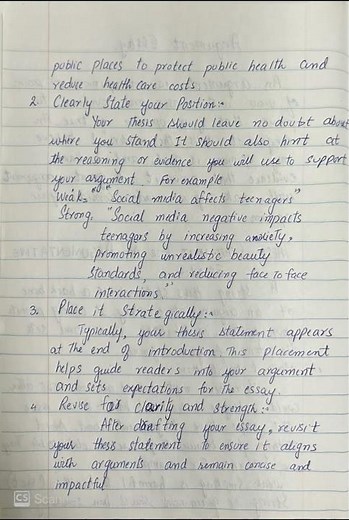 public places to protect public health and
reduce health care costs.
2. Clearly State your Position:-
Your Thesis should leave no doubt about
where you stand. It should also hint at
the reasoning or evidence you will use to support
your argument. For example
Weak, "Social media affects teenagers"
Strong, "Social media negative impacts
teenagers by increasing anxiety,
promoting unrealistic beauty
standards, and reducing face to face
interactions."
3. Place it Strategically:-
Typically, your thesis statement appears
at the end of introduction. This placement
helps guide readers into your argument
and sets expectations for the essay
4. Revise for clarity and strength:-
After drafting your essay, revisit
your thesis statement to ensure it aligns
with arguments and remain concise and
impactful
CS